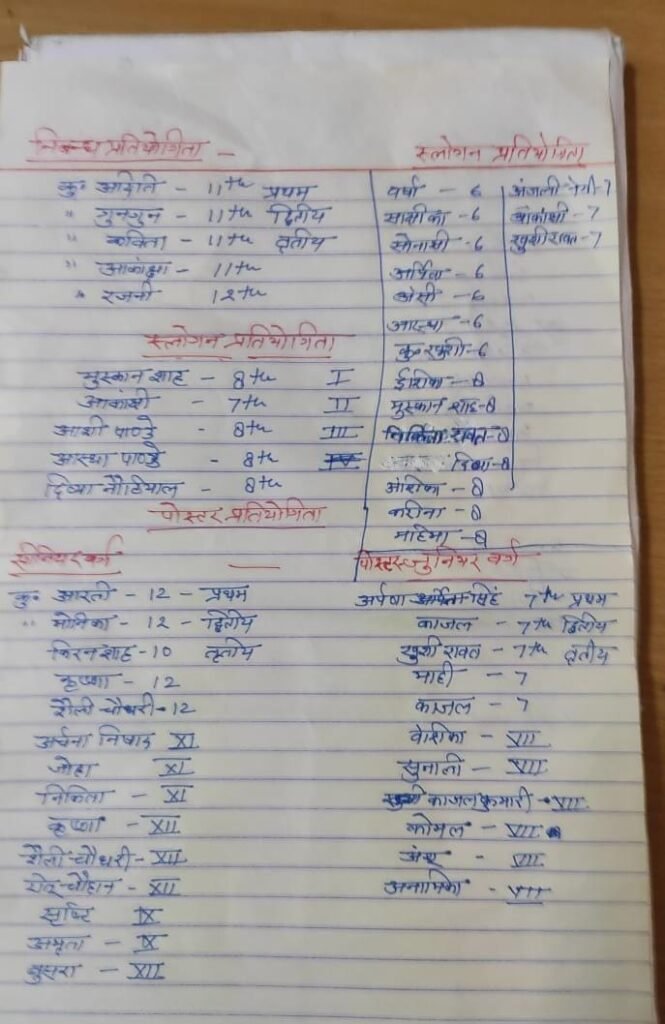 निबन्ध प्रतियोगिता –
कु० आरोति – 11th प्रथम
" गुनगुन – 11th द्वितीय
" कविता – 11th तृतीय
" आकांक्षा – 11th
" रजनी 12th
स्लोगन प्रतियोगिता
मुस्कान शाह – 8th I
आकांक्षी – 7th II
आशी पाण्डे – 8th III
आस्था पाण्डे – 8th
दिव्या नौटियाल – 8th
स्लोगन प्रतियोगिता
वर्षा – 6
साक्षीका – 6
सोनाक्षी – 6
अर्पिता – 6
अंसी – 6
आस्था – 6
कु० खुशी – 6
ईशिका – 8
मुस्कान शाह – 8
निकिता रावत – 8
दिव्या – 8
अंशिका – 8
करीना – 8
महिमा – 8
अंजली नेगी – 7
आकांक्षी – 7
खुशी रावत – 7
पोस्टर प्रतियोगिता
सीनियर वर्ग
कु० आरती – 12 – प्रथम
" मोनिका – 12 – द्वितीय
किरन शाह – 10 तृतीय
कृष्णा – 12
शैली चौधरी – 12
अर्चना निषाद XI
जोहा XI
निकिता – XI
कृष्णा – XII
शैली चौधरी – XII
चौहान – XII
सृष्टि IX
अमृता – IX
बुसरा – XII
पोस्टर जुनियर वर्ग
सिंह 7th प्रथम
काजल – 7th द्वितीय
खुशी रावत – 7th तृतीय
माही – 7
काजल – 7
वंशिका – VII
सुनाली – VII
काजल कुमारी – VII
कोमल – VII
अंश – VII
अनामिका – VII